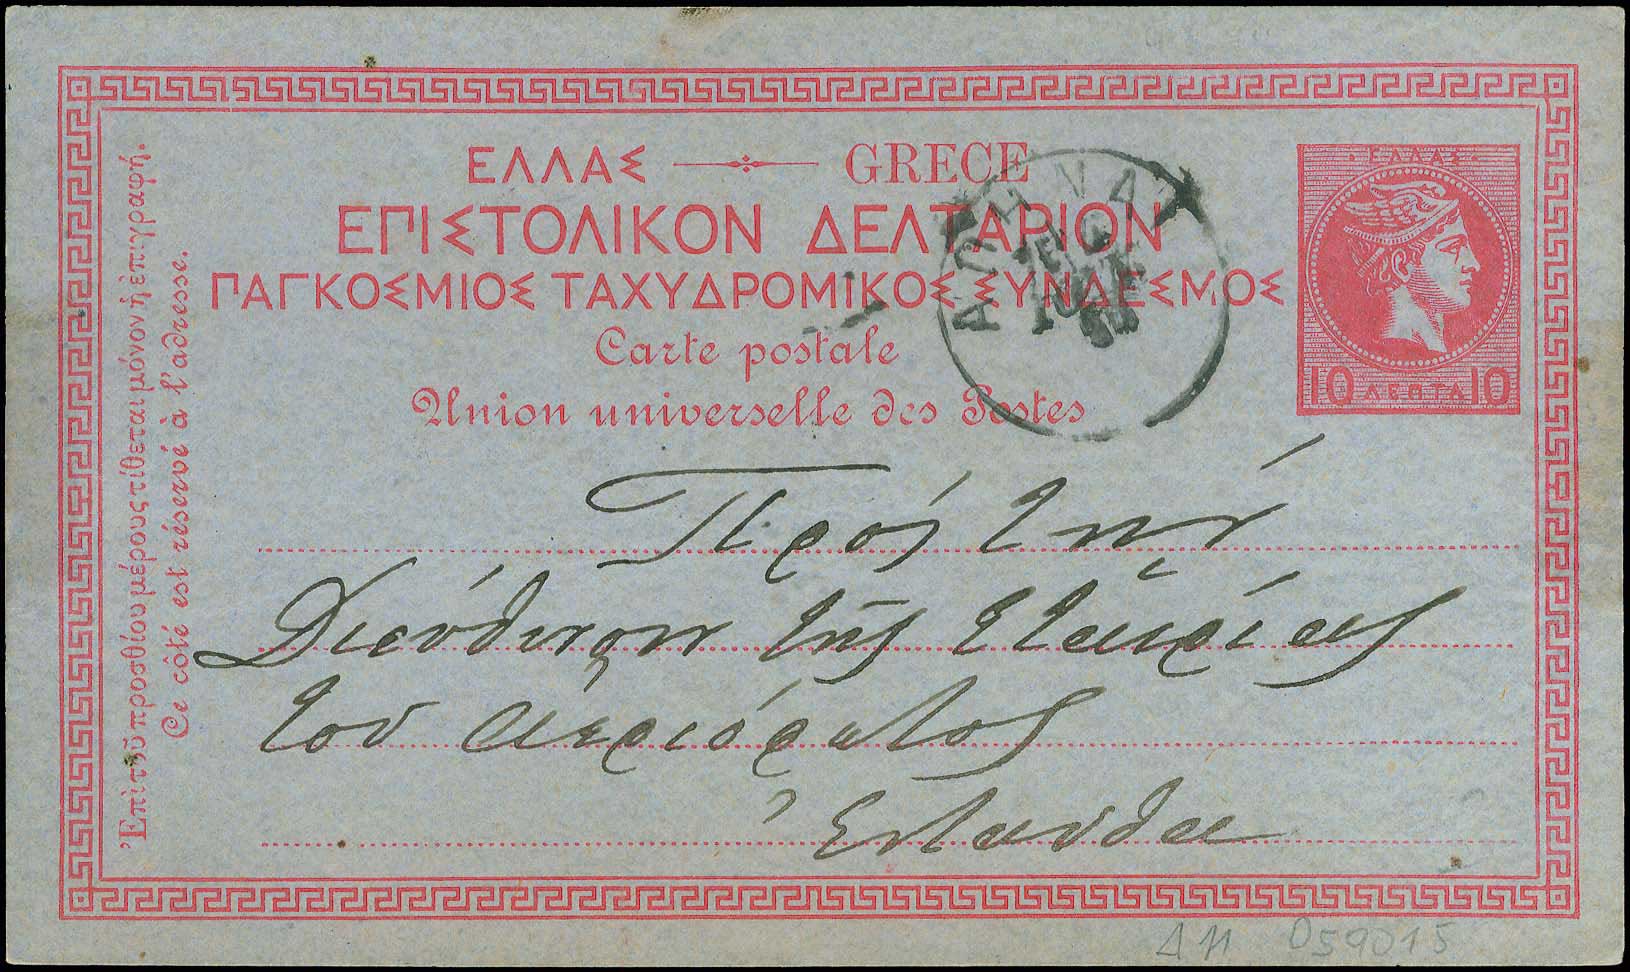 ΕΛΛΑΣ GRECE
ΕΠΙΣΤΟΛΙΚΟΝ ΔΕΛΤΑΡΙΟΝ
ΠΑΓΚΟΣΜΙΟΣ ΤΑΧΥΔΡΟΜΙΚΟΣ ΣΥΝΔΕΣΜΟΣ
Carte postale
Union universelle des Postes
Ἐπὶ τοῦ προσθίου μέρους τίθεται μόνον ἡ ἐπιγραφή.
Ce côté est réservé à l'adresse.
ΕΛΛΑΣ
10 ΛΕΠΤΑ 10
ΑΘΗΝΑΙ
Πρός τήν
Διεύθυνσιν τῆς Ἑταιρίας
τοῦ ἀεριόφωτος
Ἐνταῦθα
ΔΗ 059015